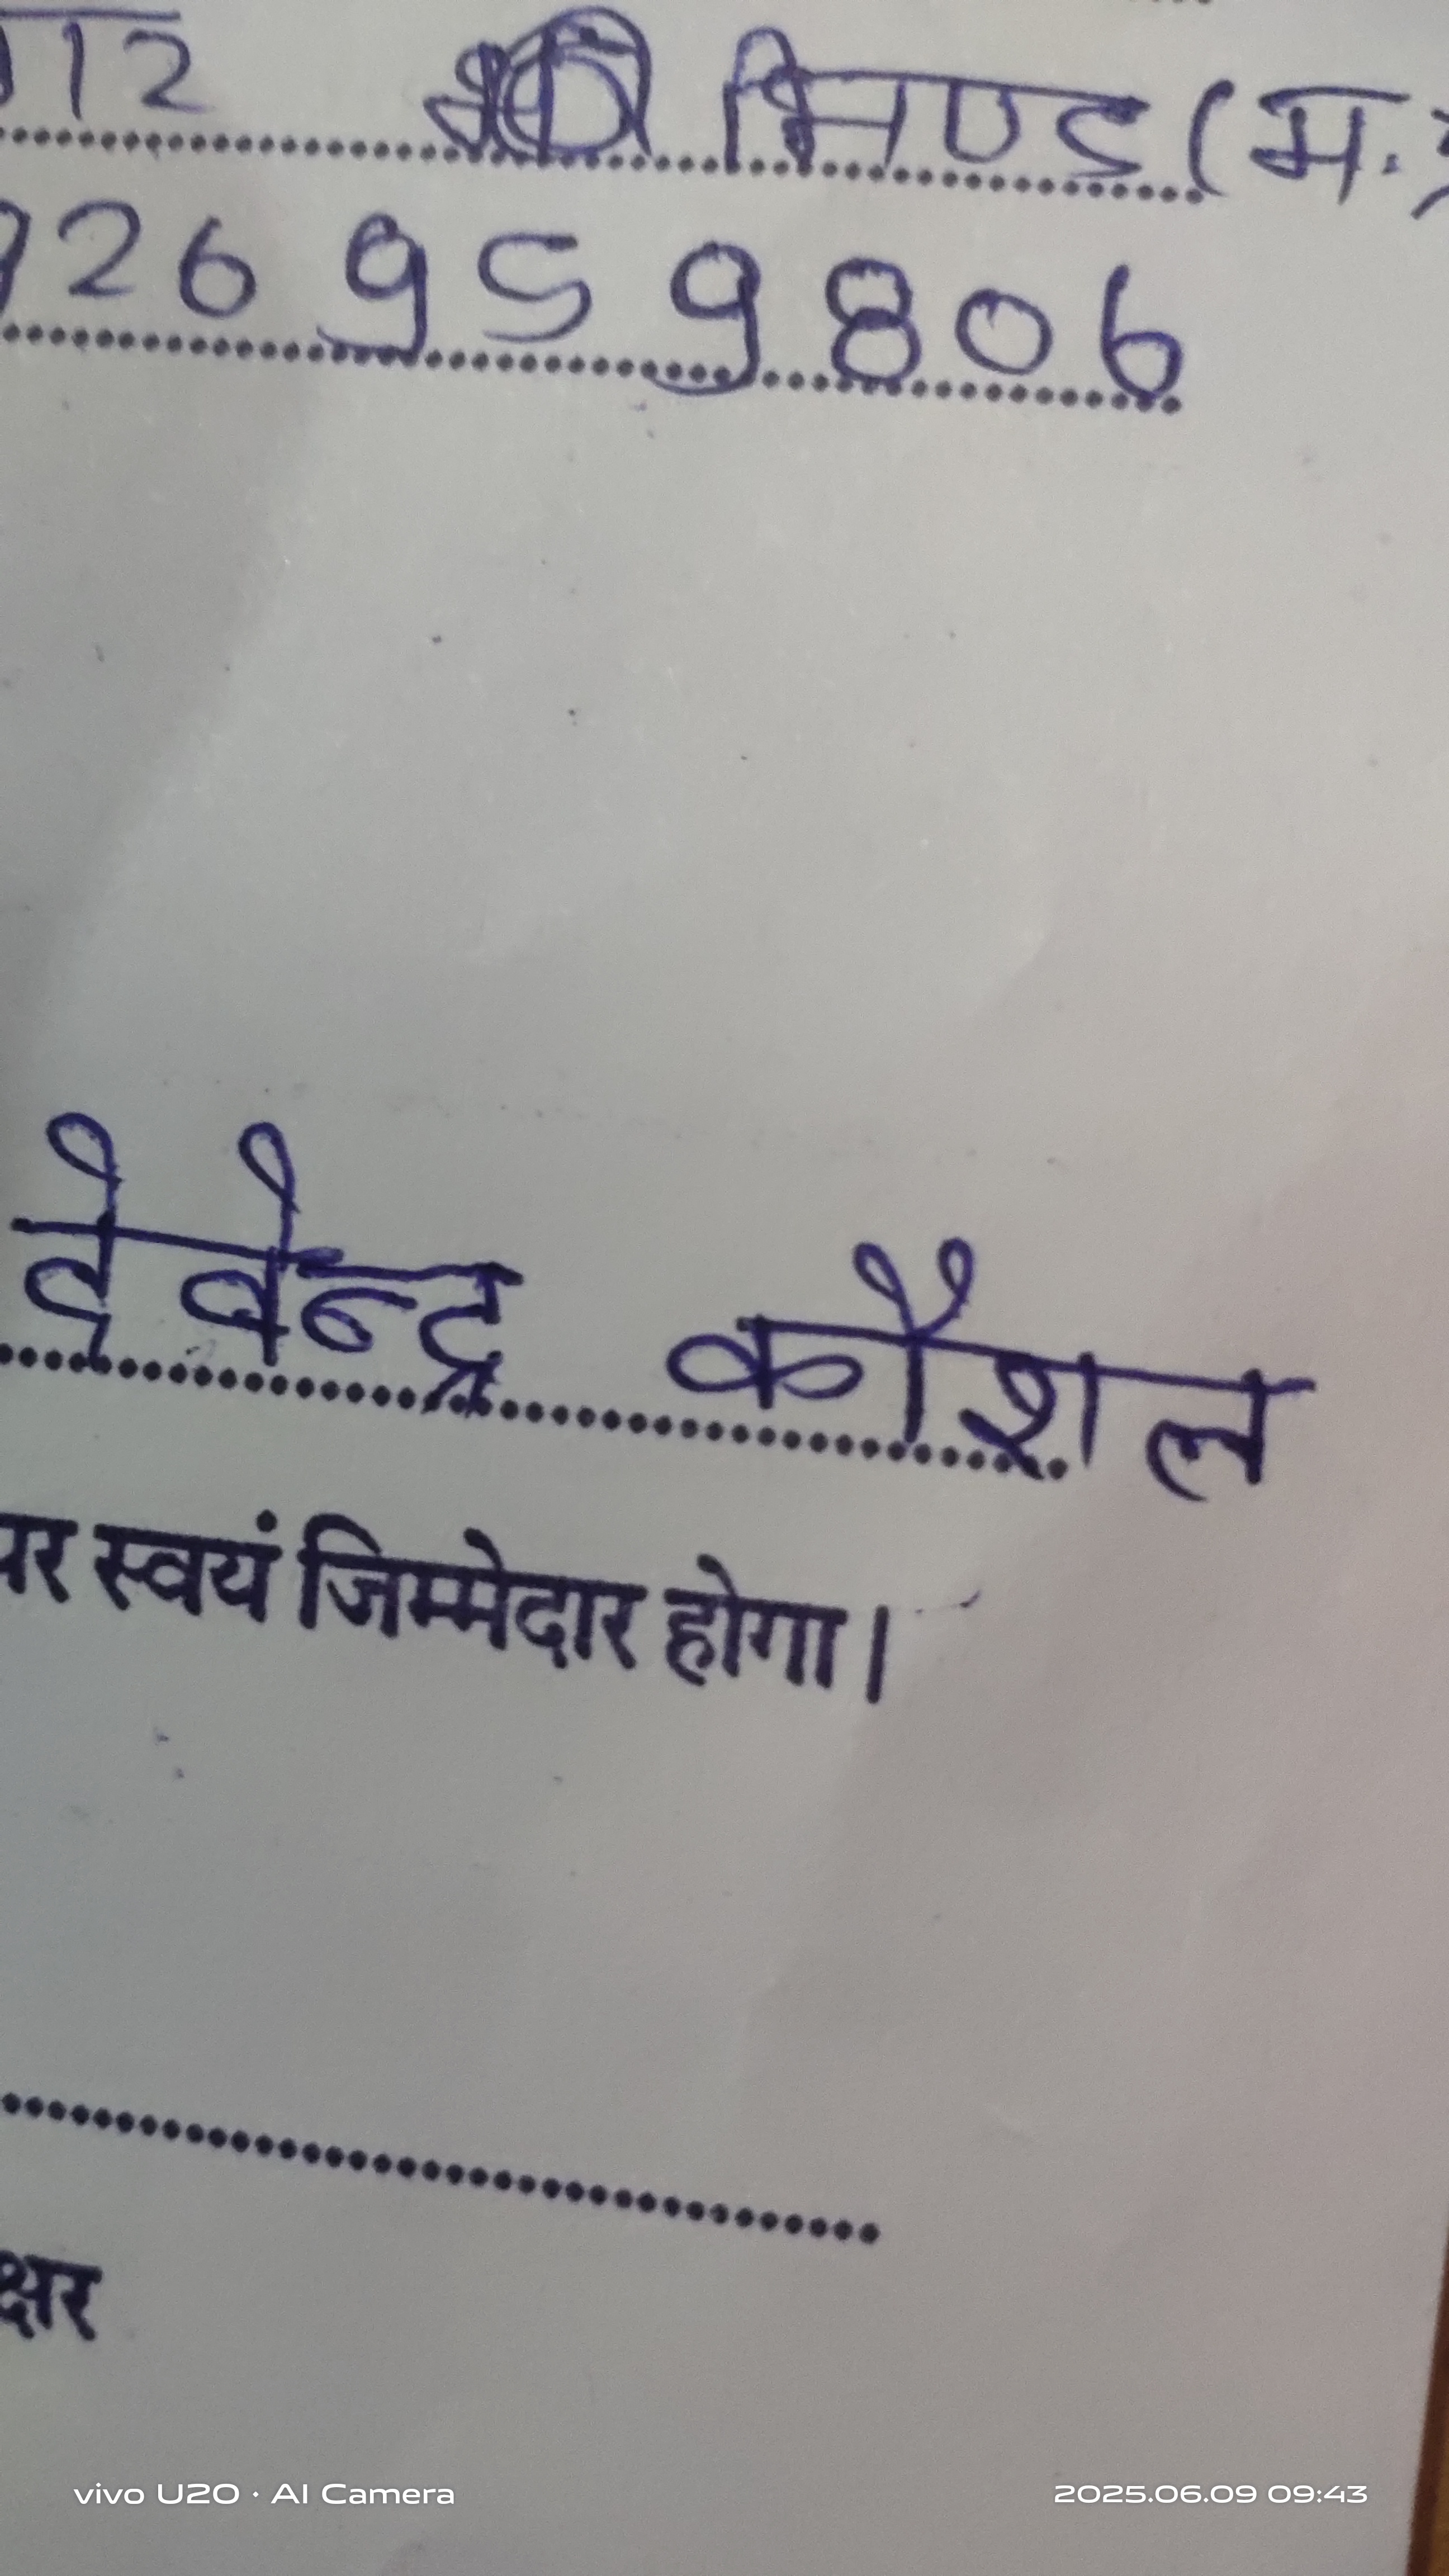 भिण्ड (म.
926 959806
देवेन्द्र कौशल
पर स्वयं जिम्मेदार होगा।
क्षर
vivo U20 · AI Camera 2025.06.09 09:43